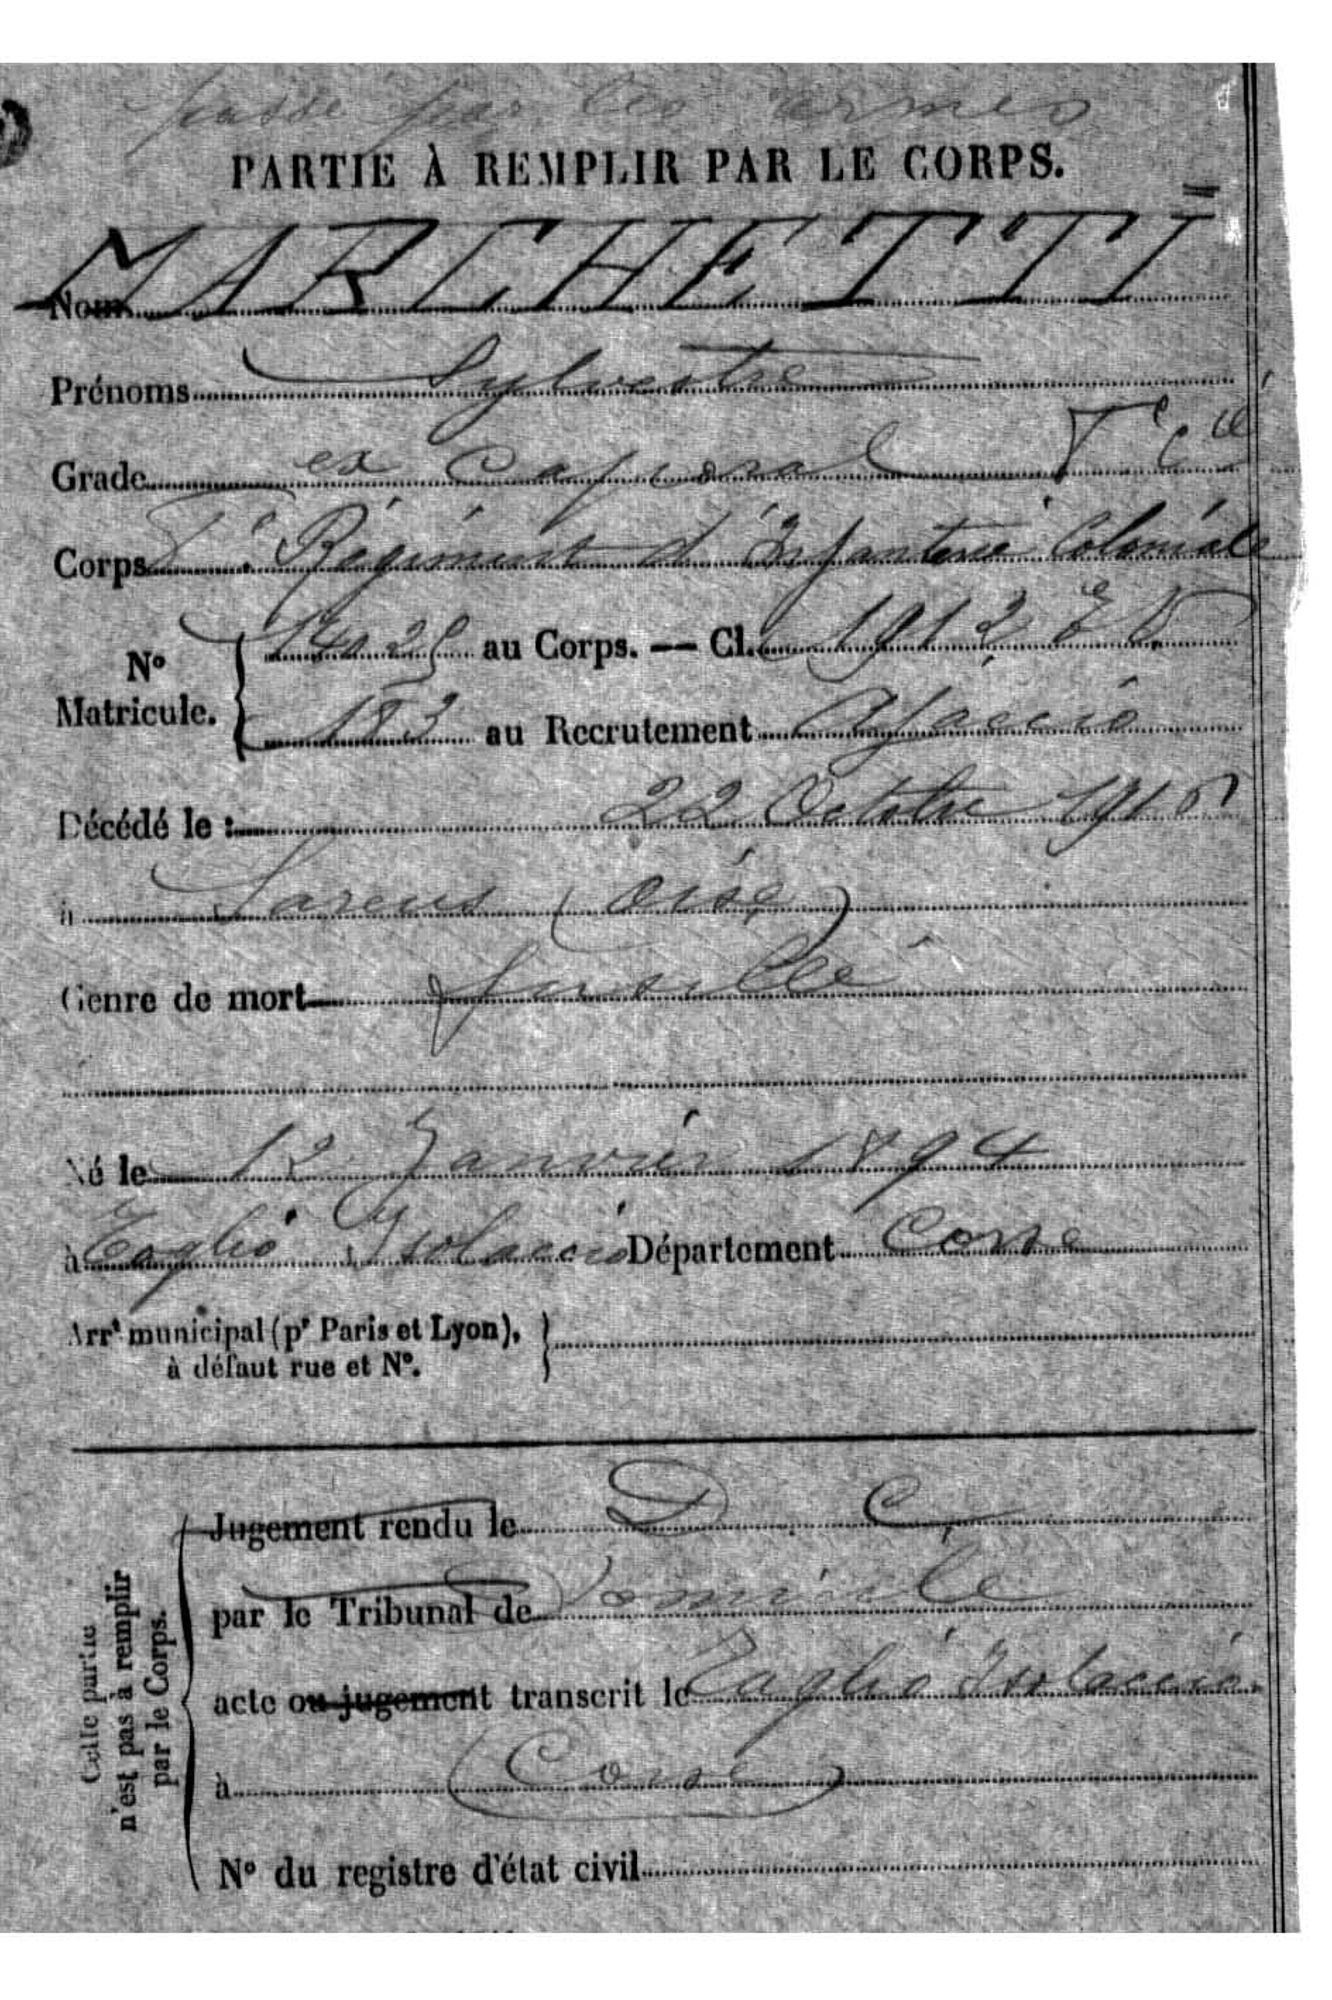 passé par les armes
PARTIE À REMPLIR PAR LE CORPS.
Nom MARCHETTI
Prénoms Sylvestre
Grade ex Caporal
Corps Régiment d'Infanterie Coloniale
N° Matricule. au Corps. — Cl. 1912
183 au Recrutement Ajaccio
Décédé le : 22 Octobre 1916
à (Oise)
Genre de mort fusillé
Né le 12 Janvier 1894
à Taglio Isolaccio Département Corse
Arrt municipal (pr Paris et Lyon),
à défaut rue et N°.
Cette partie n'est pas à remplir par le Corps.
Jugement rendu le D. C.
par le Tribunal de Domicile
acte ou jugement transcrit le Taglio Isolaccio
à (Corse)
N° du registre d'état civil